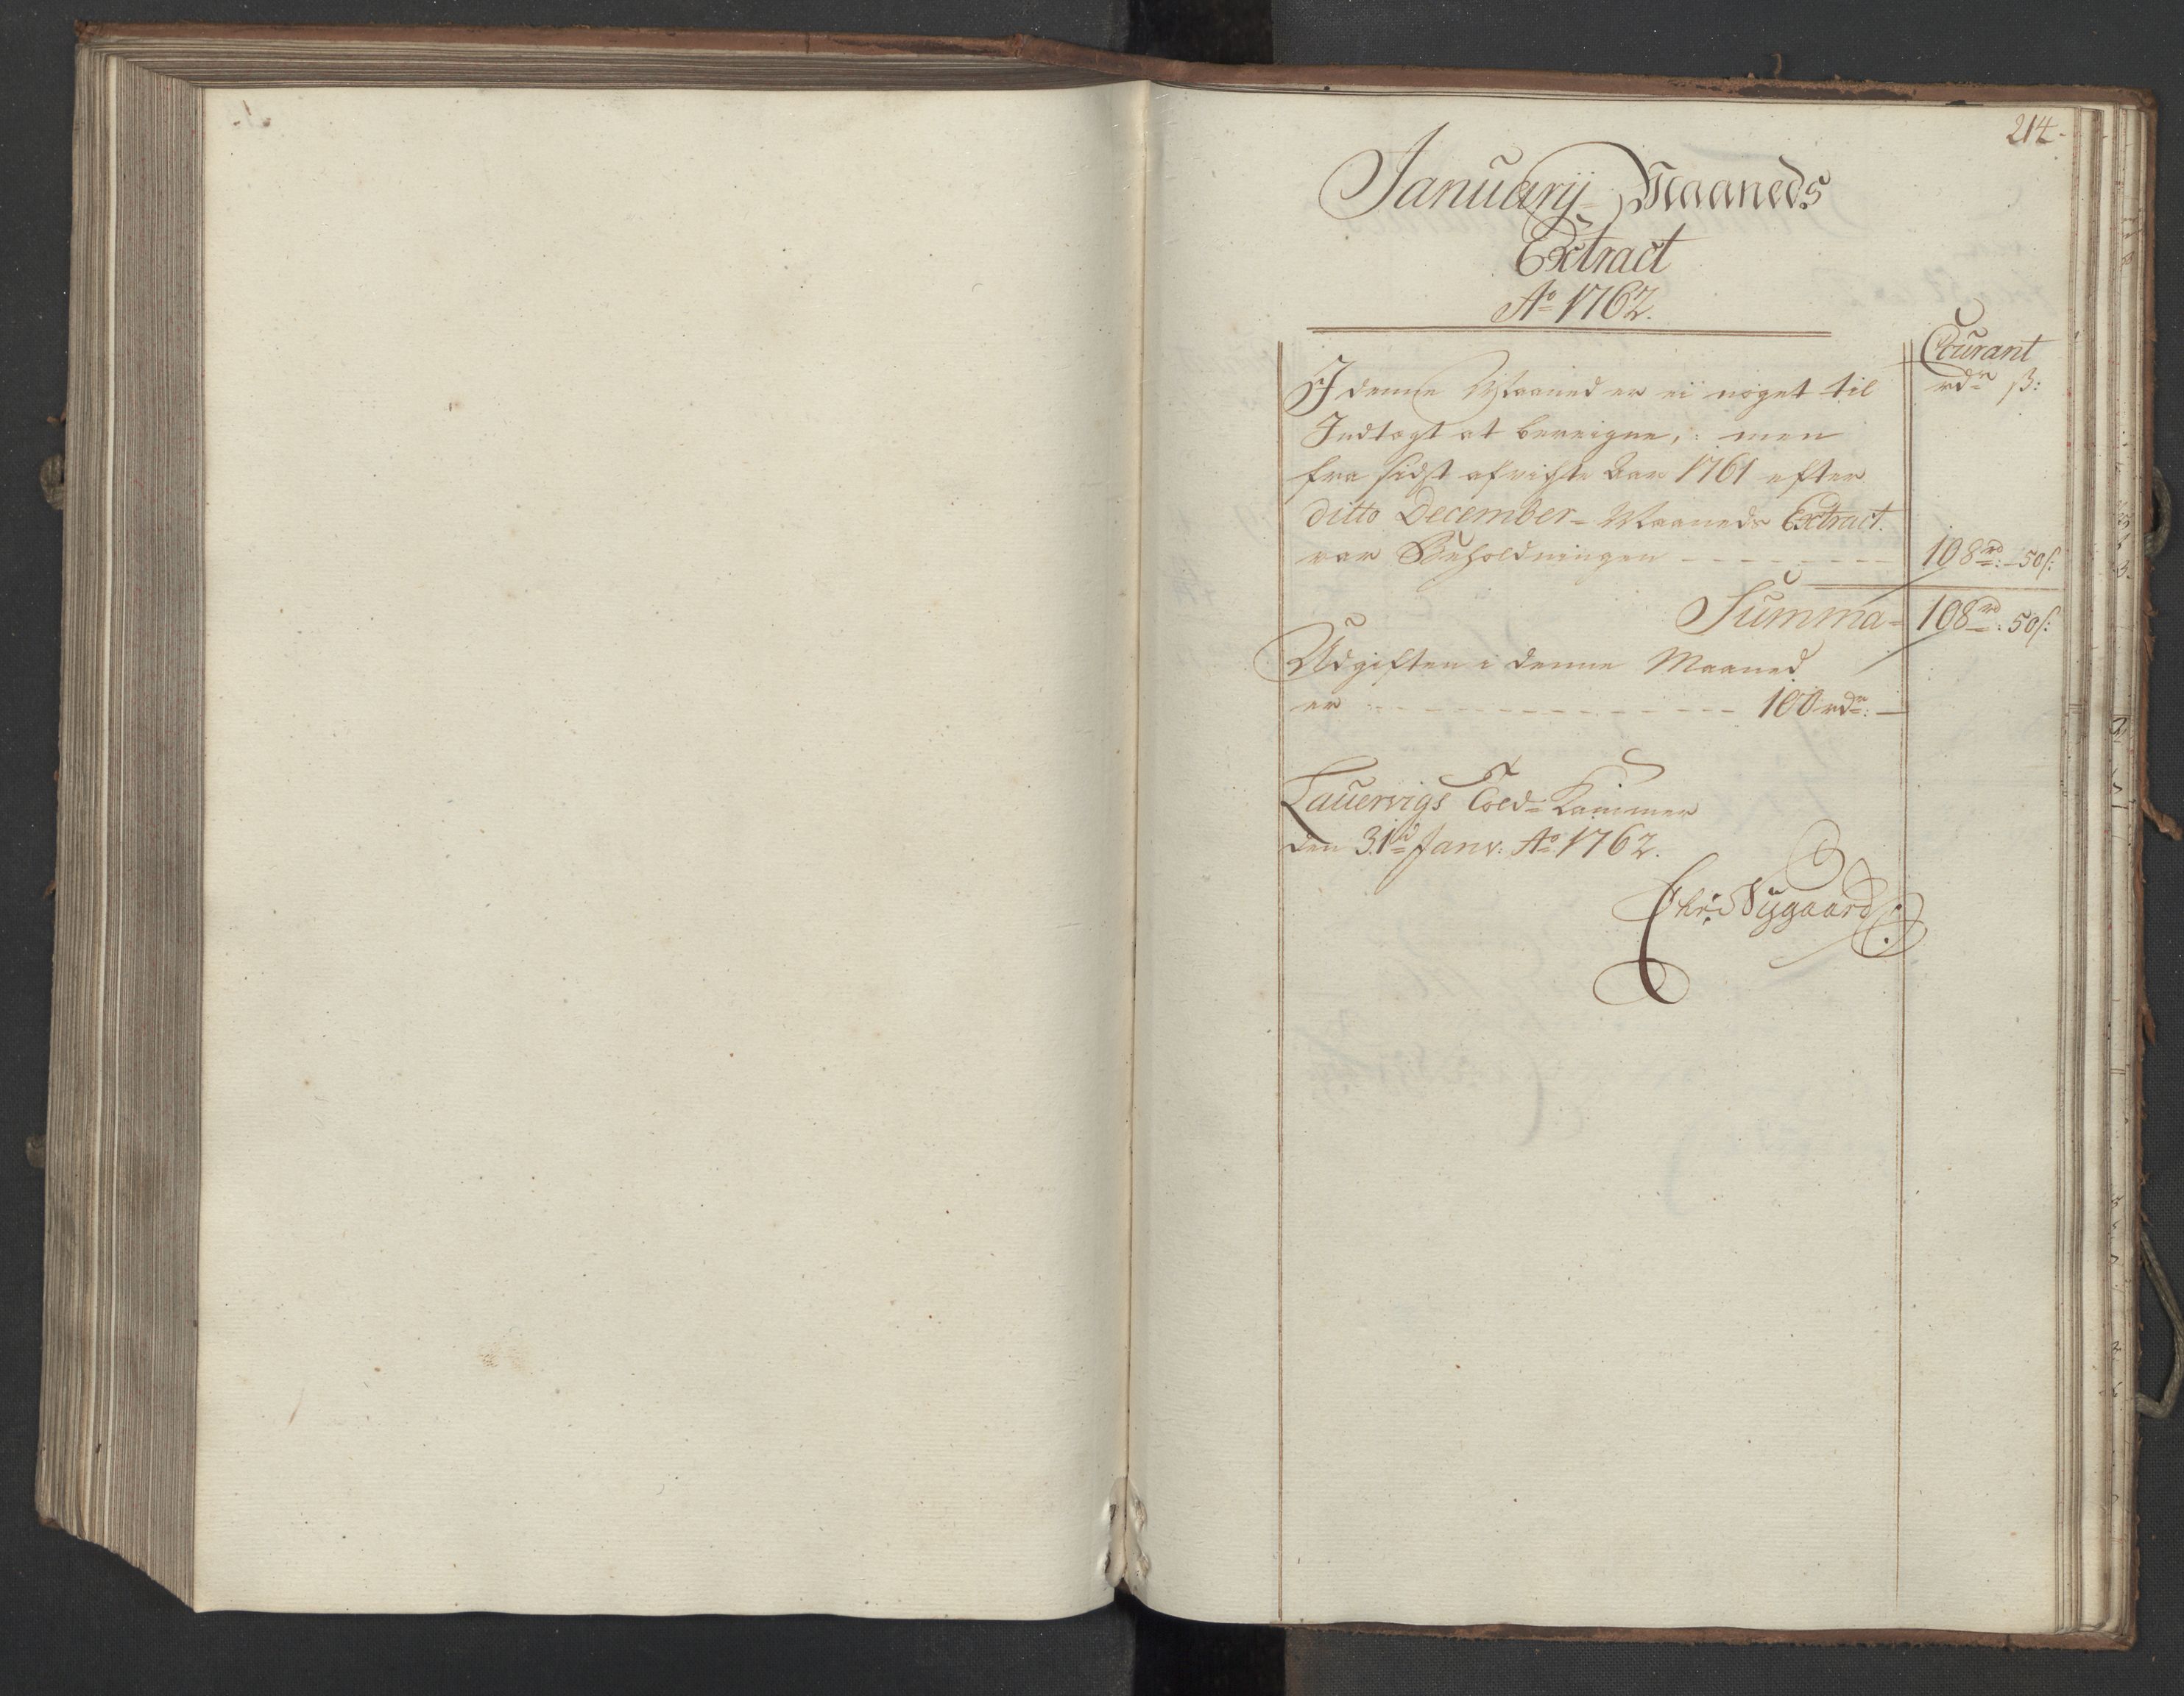 214.
Januarij Maaneds
Extract
Ao 1762.
Courant
rdr ß:
I denne Maaned er ei noget til
Indtægt at bereigne, : men
fra sidst afvigte Aar 1761 efter
ditto December- Maaneds Extract.
var Beholdningen - - - - - - - 108rd: 50s:
Summa- 108rd: 50s:
Udgiften i denne Maaned
er - - - - - - - - - - - - - - 100 rdr: -
Lauervigs Told- Kammer
den 31d Janv: Ao 1762.
Chr: Nygaard